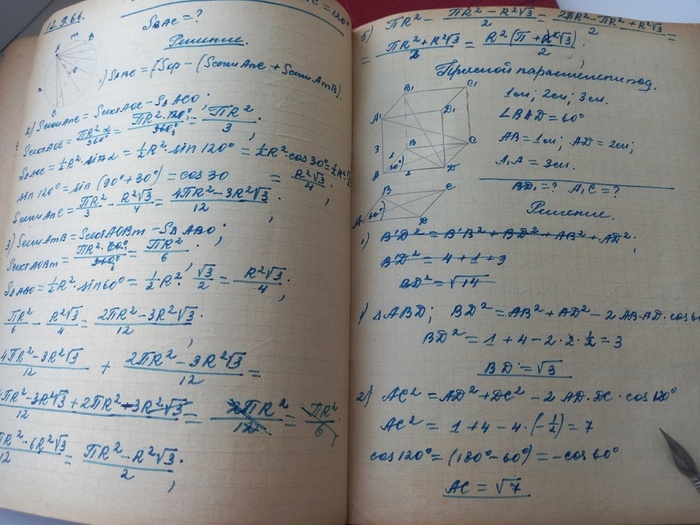 12.9.66.
S_BAC = ?
Решение.
1) S_ВАС = [Sкр - (Sсегм AnC + Sсегм AmB).
2) Sсегм AnC = Sсект AOC - S△ACO;
Sсект AOC = ПR²·120°/360° = ПR²/3;
S△AOC = ½R² sin α = ½R² sin 120° = ½R² cos 30° =
sin 120° = sin (90° + 30°) = cos 30 = R²√3/4;
Sсегм AnC = ПR²/3 - R²√3/4 = 4ПR² - 3R²√3/12;
3) Sсегм AmB = Sсект AOBm - S△ABO;
Sсект AOBm = ПR²·60°/360° = ПR²/6;
S△ABO = ½R² sin 60° = ½R²·√3/2 = R²√3/4;
ПR²/6 - R²√3/4 = 2ПR² - 3R²√3/12;
4ПR² - 3R²√3/12 + 2ПR² - 3R²√3/12 =
4ПR² - 3R²√3 + 2ПR² - 3R²√3/12 = ПR²/6;
ПR² - 6R²√3/12 = ПR² - R²√3/2;
5) ПR² - ПR² - R²√3/2 = 2ПR² - ПR² + R²√3/2 =
= ПR² + R²√3/2 = R²(П + √3)/2;
Прямой параллелепипед.
B₁ C₁ A₁ D₁ B C A D
3 1 2 60°
1 см; 2 см; 3 см.
∠BAD = 60°
AB = 1 см; AD = 2 см;
A₁A = 3 см.
BD₁ = ? A₁C = ?
B C A D 60°
Решение.
1) B'D² = B'B² + BD² + AB² + AD²;
B'D² = 4 + 1 + 9
BD² = √14
1) △ABD; BD² = AB² + AD² - 2 AB·AD·cos 60
BD² = 1 + 4 - 2·2·½ = 3
BD = √3
2) AC² = AD² + DC² - 2 AD·DC·cos 120°
AC² = 1 + 4 - 4·(-½) = 7
cos 120° = (180° - 60°) = -cos 60°
AC = √7